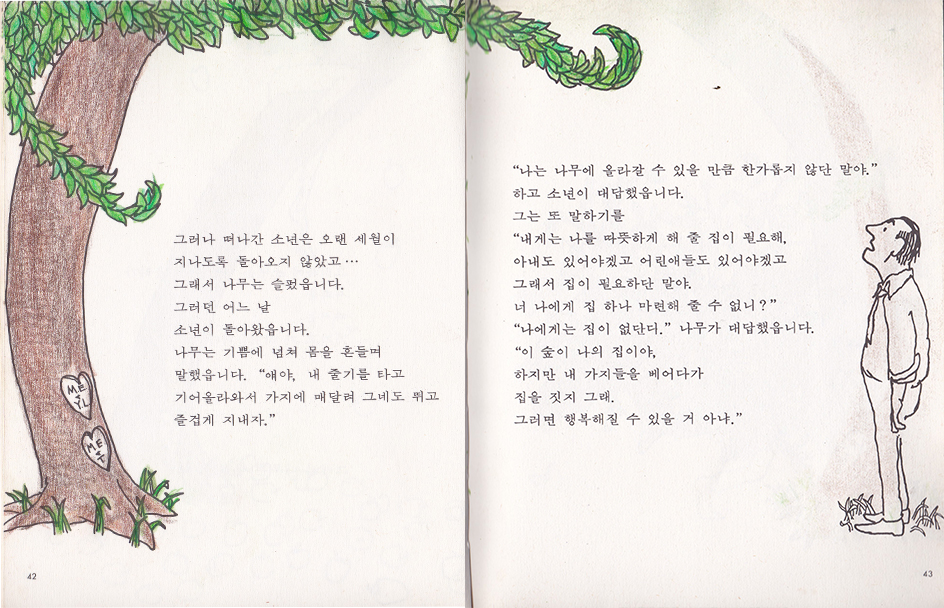 그러나 떠나간 소년은 오랜 세월이
지나도록 돌아오지 않았고…
그래서 나무는 슬펐읍니다.
그러던 어느 날
소년이 돌아왔읍니다.
나무는 기쁨에 넘쳐 몸을 흔들며
말했읍니다. “얘야, 내 줄기를 타고
기어올라와서 가지에 매달려 그네도 뛰고
즐겁게 지내자.”
ME
+
Y.L.
ME
+
T.
42
“나는 나무에 올라갈 수 있을 만큼 한가롭지 않단 말야.”
하고 소년이 대답했읍니다.
그는 또 말하기를
“내게는 나를 따뜻하게 해 줄 집이 필요해.
아내도 있어야겠고 어린애들도 있어야겠고
그래서 집이 필요하단 말야.
너 나에게 집 하나 마련해 줄 수 없니?”
“나에게는 집이 없단다.” 나무가 대답했읍니다.
“이 숲이 나의 집이야,
하지만 내 가지들을 베어다가
집을 짓지 그래.
그러면 행복해질 수 있을 거 아냐.”
43